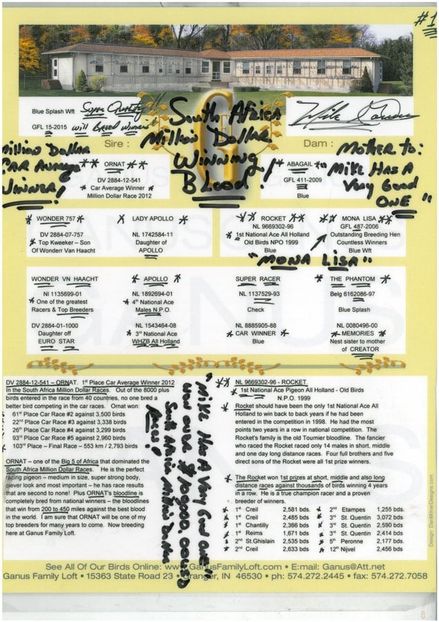 #1
Blue Splash Wft
Super Quality
GFL 15-2015
will Breed winners
South Africa
Million Dollar
Winning
Blood!
Sire :
Dam :
Million Dollar
CAR Average
Winner!
Mother to:
Mike Has A
Very Good
ONE "
** ORNAT **
DV 2884-12-541
* Car Average Winner *
Million Dollar Race 2012
** ABAGAIL **
GFL 411-2009
Blue
* WONDER 757 *
DV 2884-07-757
* Top Kweeker – Son
Of Wonder Van Haacht
LADY APOLLO
NL 1742584-11
Daughter of
APOLLO
* ROCKET *
NL 9669302-96
* 1st National Ace All Holland
Old Birds NPO 1999
Blue Wft
MONA LISA *
GFL 487-2006
Outstanding Breeding Hen
Countless Winners
Blue Wft
"MONA LISA"
WONDER VN HAACHT
NI 1135699-01
* One of the greatest
Racers & Top Breeders
* APOLLO *
NL 1892694-01
* 4th National Ace
Males N.P.O.
SUPER RACER
NL 1137529-93
Check
* THE PHANTOM *
Belg 6162086-97
Blue Splash
DV 2884-01-1000
Daughter off
EURO STAR
NL 1543464-08
* 3rd National Ace
WHZB All Holland
NL 8885905-88
* CAR WINNER *
Blue
NL 0080496-00
* MEMORIES *
Nest sister to mother
of CREATOR
DV 2884-12-541 – ORNAT. 1st Place Car Average Winner 2012
in the South Africa Million Dollar Races. Out of the 6000 plus
birds entered in the race from 40 countries, no one bred a
better bird competing in the car races. Ornat won
* 61st Place Car Race #2 against 3,000 birds
* 22nd Place Car Race #3 against 3,338 birds
* 26th Place Car Race #4 against 3,299 birds
* 93rd Place Car Race #5 against 2,960 birds
* 103rd Place – Final Race – 553 km / 2,793 birds
ORNAT – one of the Big 5 of Africa that dominated the
South Africa Million Dollar Races. He is the perfect
flying pigeon – medium in size, super strong body,
clever look and most important – he has race results
that are second to none! Plus ORNAT's bloodline is
completely bred from national winners – the bloodlines
that win from 200 to 450 miles against the best birds
in the world. I am sure that ORNAT will be one of my
top breeders for many years to come. Now breeding
here at Ganus Family Loft.
"Mike Has A Very Good one"
NL 9669302-96 - ROCKET.
* 1st National Ace Pigeon All Holland - Old Birds
N.P.O. 1999
Rocket should have been the only 1st National Ace All
Holland to win back to back years if he had been
entered in the competition in 1998. He had the most
points two years in a row in national competition. The
Rocket's family is the old Tournier bloodline. The fancier
who raced the Rocket raced only 14 males in short, middle
and one day long distance races. Four full brothers and five
direct sons of the Rocket were all 1st prize winners.
The Rocket won 1st prizes at short, middle and also long
distance races against thousands of birds winning 4 years
in a row. He is a true champion racer and a proven
breeder of winners.
* 1st Creil 2,581 bds
* 1st Creil 2,485 bds
* 1st Chantilly 2,366 bds
* 1st Reims 1,671 bds
* 2nd St.Ghislain 2,535 bds
* 2nd Creil 2,633 bds
* 2nd Etampes 1,255 bds
* 3rd St. Quentin 3,072 bds
* 3rd St. Quentin 2,590 bds
* 3rd St. Quentin 2,414 bds
* 5th Peronne 2,177 bds
* 12th Nijvel 2,456 bds
See All Of Our Birds Online: www.GanusFamilyLoft.com • E:mail: Ganus@Att.net
Ganus Family Loft • 15363 State Road 23 • Granger, IN 46530 • ph: 574.272.2445 • fax: 574.272.7058